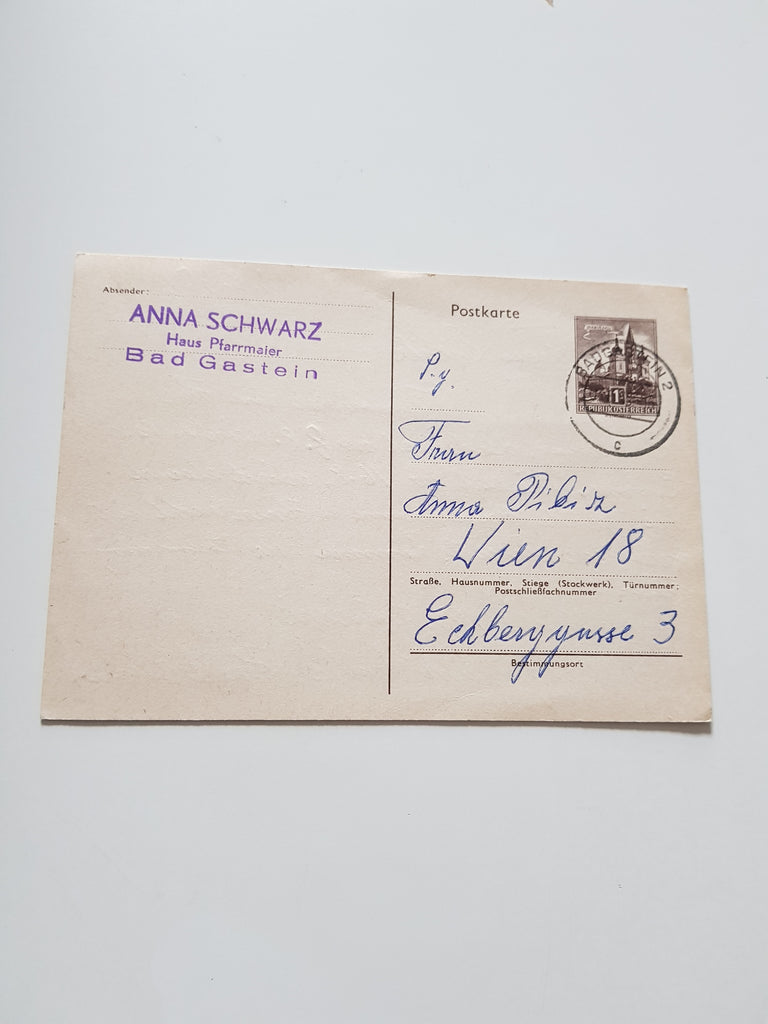 Absender:
ANNA SCHWARZ
Haus Pfarrmaier
Bad Gastein
Postkarte
1S
REPUBLIK ÖSTERREICH
BADGASTEIN 2
c
Frau
Anna
Wien 18
Straße, Hausnummer, Stiege (Stockwerk), Türnummer;
Postschließfachnummer
Eckberggasse 3
Bestimmungsort